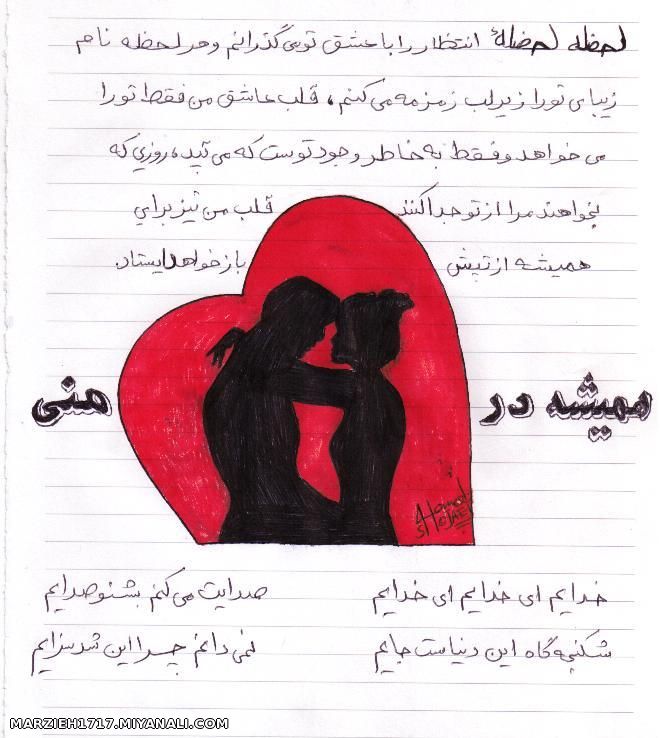 لحظه لحضهٔ انتظار را با عشق تو می گذرانم و هر لحظه نام
زیبای تو را زیر لب زمزمه می کنم، قلب عاشق من فقط تو را
می خواهد و فقط به خاطر وجود توست که می تپد، روزی که
بخواهند مرا از تو جدا کنند قلب من نیز برای
همیشه از تپش باز خواهد ایستاد.
همیشه در منی
Hamed
خدایم ای خدایم ای خدایم صدایت می کنم بشنو صدایم
شکنجه گاه این دنیاست جایم نمی دانم چرا این شد سزایم
MARZIEH1717.MIYANALI.COM